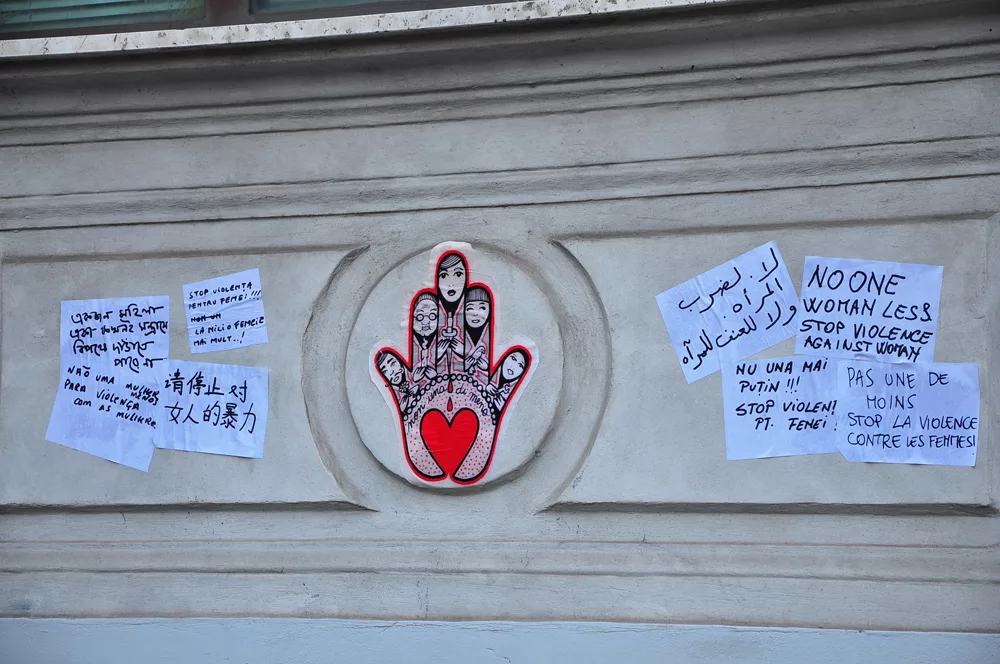 একজন মহিলা
STOP VIOLENȚA
PENTRU FEMEI!!!
LA MICI O FEMEIE
MAI MULT..!
NÃO UMA MULHER
MENOS
PARA VIOLENÇA
COM AS MULHERE
请停止对
女人的暴力
una di meno
لا لضرب
المرأة
ولا للعنف للمرأه
NO ONE
WOMAN LESS
STOP VIOLENCE
AGAINST WOMAN
NU UNA MAI
PUȚIN !!!
STOP VIOLEN!
PT. FEMEI !
PAS UNE DE
MOINS
STOP LA VIOLENCE
CONTRE LES FEMMES!